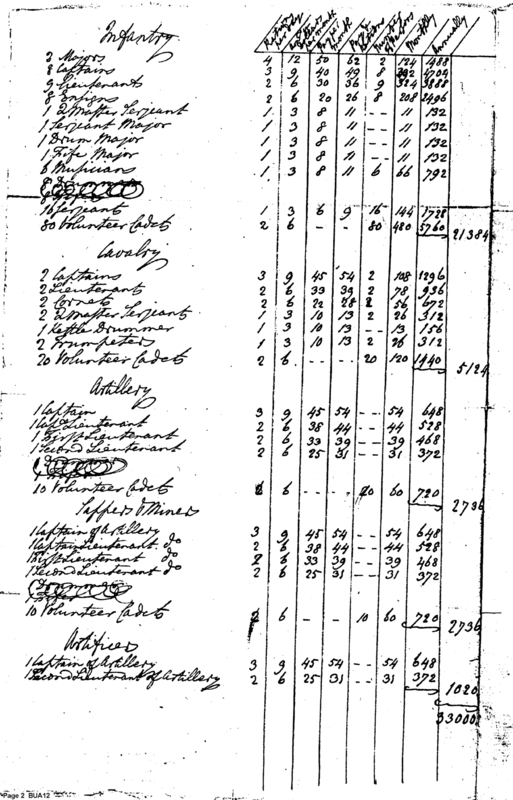 Infantry
Monthly Annually
2 Majors 4 12 50 62 2 124 1488
8 Captains 3 9 40 49 8 392 4704
9 Lieutenants 2 6 30 36 9 324 3888
8 Ensigns 2 6 20 26 8 208 2496
1 2d Master Serjeant 1 3 8 11 - - 11 132
1 Serjeant Major 1 3 8 11 - - 11 132
1 Drum Major 1 3 8 11 - - 11 132
1 Fife Major 1 3 8 11 - - 11 132
6 Musicians 1 3 8 11 6 66 792
16 Serjeant 1 3 6 9 16 144 1728
80 Volunteer Cadets 2 6 - - 80 480 5760 21384
Cavalry
2 Captains 3 9 45 54 2 108 1296
2 Lieutenant 2 6 33 39 2 78 936
2 Cornets 2 6 22 28 2 56 672
2 2d Master Serjeant 1 3 10 13 2 26 312
1 Kettle Drummer 1 3 10 13 - 13 156
2 Trumpeters 1 3 10 13 2 26 312
20 Volunteer Cadets 2 6 - - 20 120 1440 5124
Artillery
1 Captain 3 9 45 54 - - 54 648
1 Capt Lieutenant 2 6 38 44 - - 44 528
1 First Lieutenant 2 6 33 39 - - 39 468
1 Second Lieutenant 2 6 25 31 - - 31 372
10 Volunteer Cadets 2 6 - - 60 720 2736
Sappers & Miners
1 Captain of Artillery 3 9 45 54 - - 54 648
1 Captain Lieutenant do 2 6 38 44 - - 44 528
1 First Lieutenant do 2 6 33 39 - - 39 468
1 Second Lieutenant do 2 6 25 31 - - 31 372
10 Volunteer Cadets 2 6 - - 10 60 720 2736
Artificer
1 Captain of Artillery 3 9 45 54 - - 54 648
1 Second Lieutenant of Artillery 2 6 25 31 - - 31 372 1020
33000
Page 2 BUA12